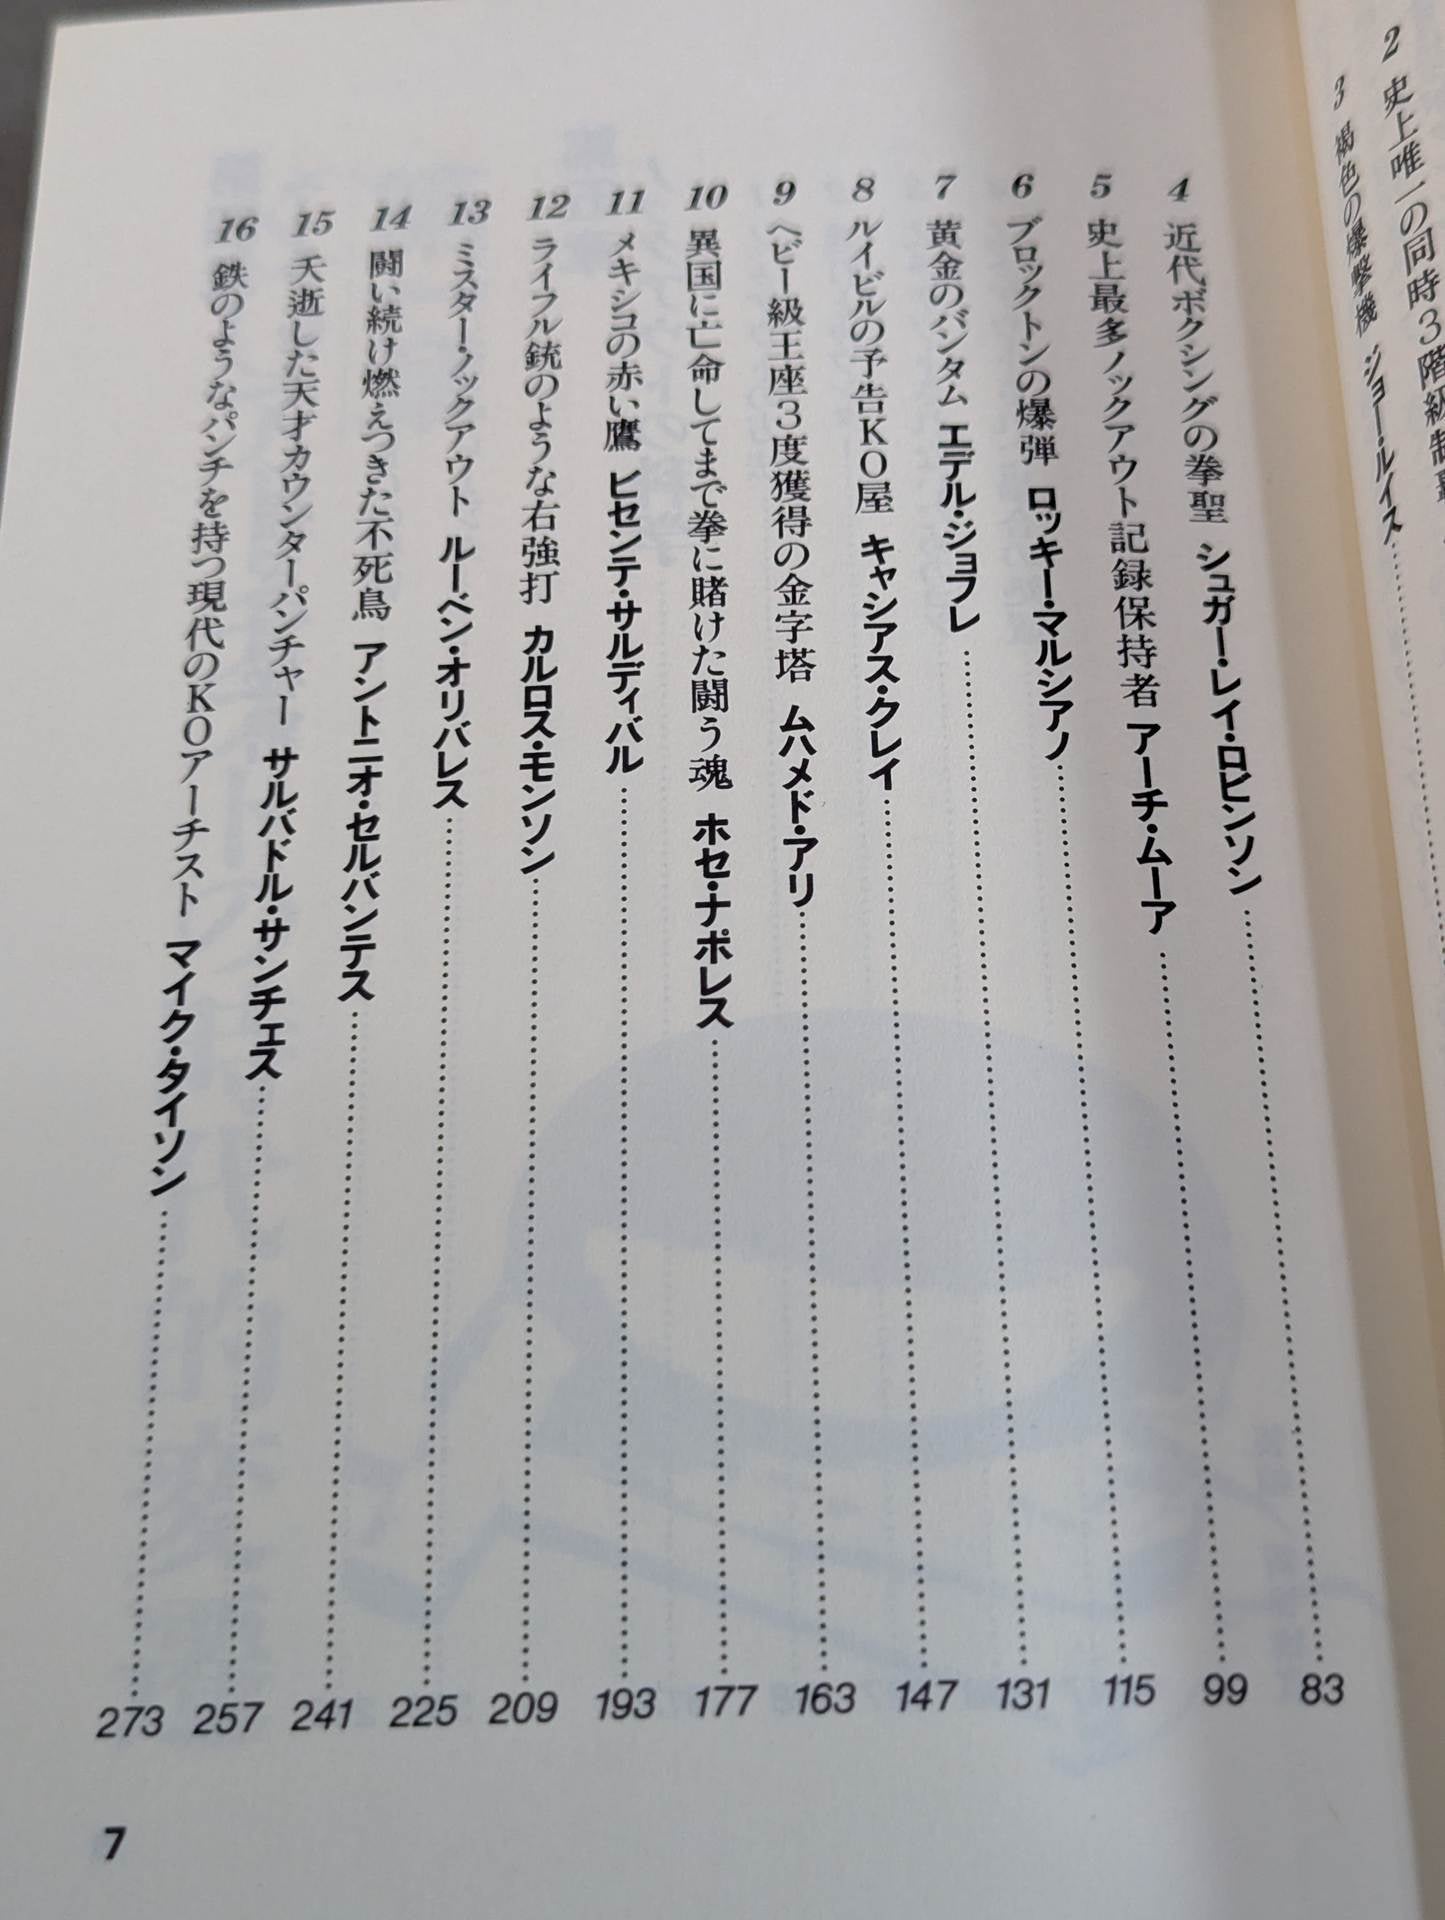 2 史上唯一の同時3階級制
3 褐色の爆撃機 ジョー・ルイス
4 近代ボクシングの拳聖 シュガー・レイ・ロビンソン 83
5 史上最多ノックアウト記録保持者 アーチ・ムーア 99
6 ブロックトンの爆弾 ロッキー・マルシアノ 115
7 黄金のバンタム エデル・ジョフレ 131
8 ルイビルの予告KO屋 キャシアス・クレイ 147
9 ヘビー級王座3度獲得の金字塔 ムハメド・アリ 163
10 異国に亡命してまで拳に賭けた闘う魂 ホセ・ナポレス 177
11 メキシコの赤い鷹 ビセンテ・サルディバル 193
12 ライフル銃のような右強打 カルロス・モンソン 209
13 ミスター・ノックアウト ルーベン・オリバレス 225
14 闘い続け燃えつきた不死鳥 アントニオ・セルバンテス 241
15 夭逝した天才カウンターパンチャー サルバドル・サンチェス 257
16 鉄のようなパンチを持つ現代のKOアーチスト マイク・タイソン 273
7